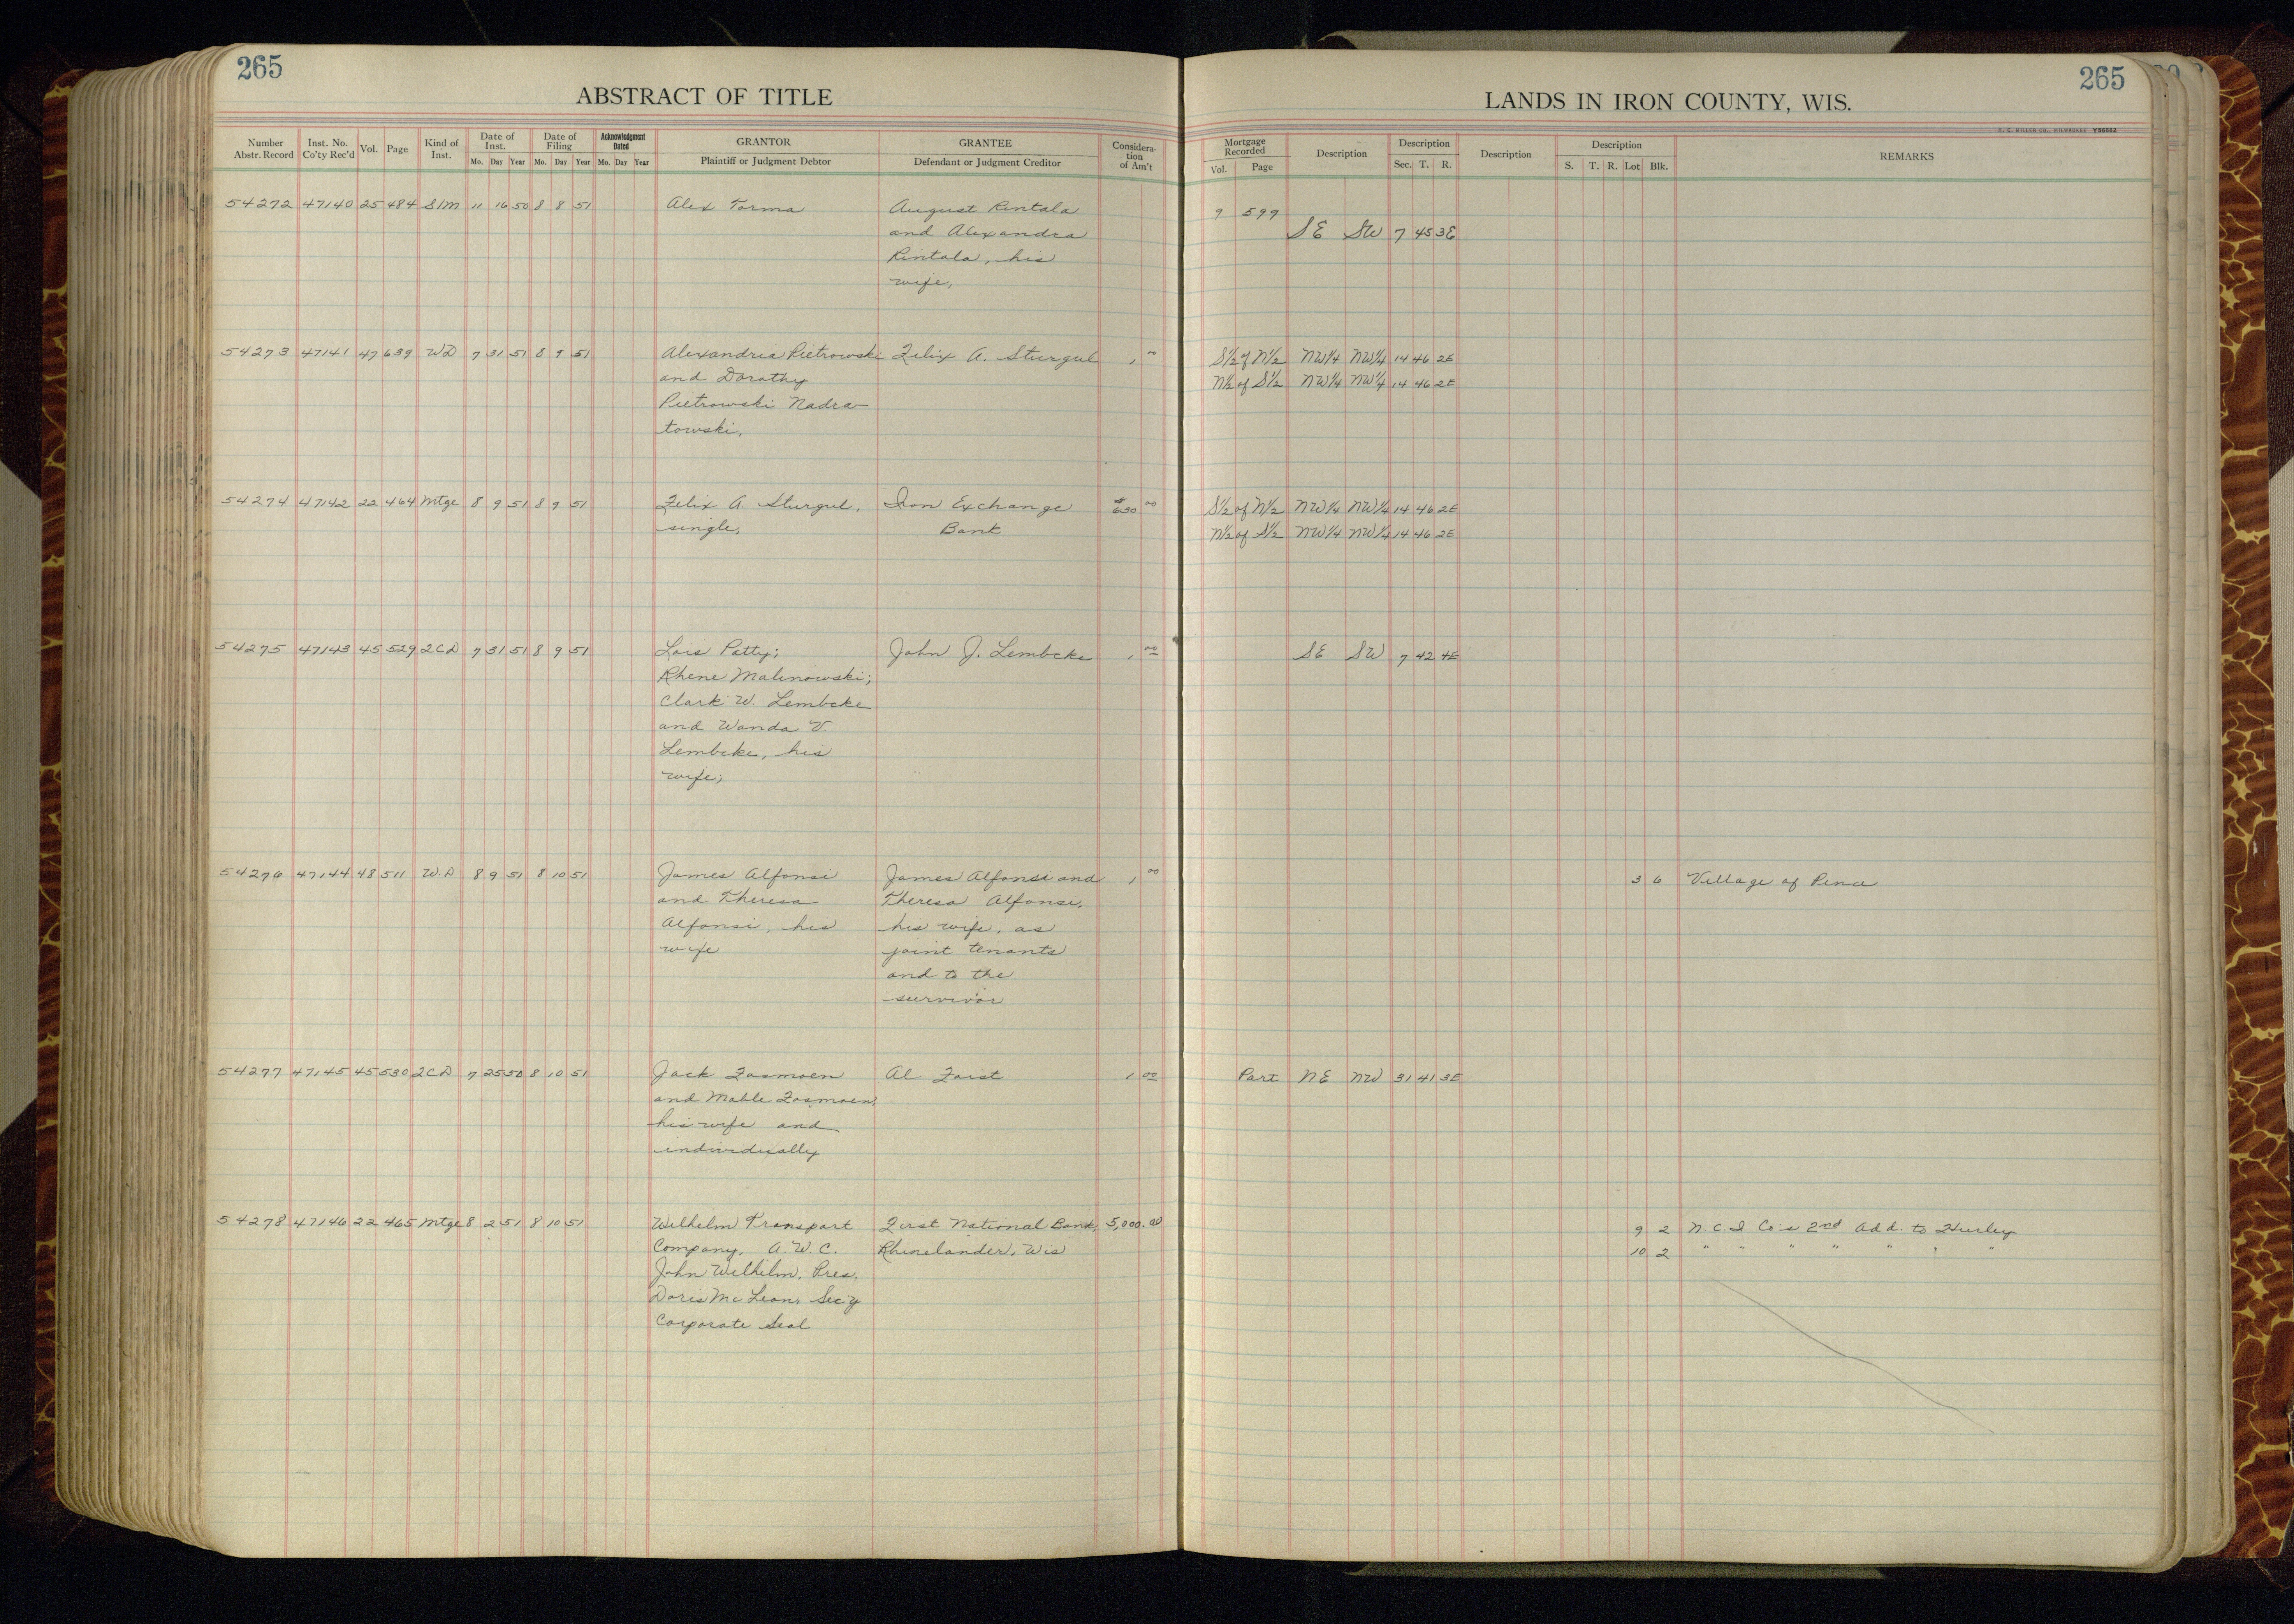 265
ABSTRACT OF TITLE
Number Abstr. Record | Inst. No. Co'ty Rec'd | Vol. | Page | Kind of Inst. | Date of Inst. Mo. Day Year | Date of Filing Mo. Day Year | Acknowledgment Dated Mo. Day Year | GRANTOR Plaintiff or Judgment Debtor | GRANTEE Defendant or Judgment Creditor | Considera-tion of Am't
54272 47140 25 484 S/M 11 16 50 8 8 51 Alex Torma August Rintala
and Alexandra
Rintala, his
wife,
54273 47141 47 639 WD 7 31 51 8 9 51 Alexandria Pietrowski Felix A. Sturgul 1 00
and Dorothy
Pietrowski Nadra-
towski.
54274 47142 22 464 Mtge 8 9 51 8 9 51 Felix A. Sturgul, Iron Exchange $630 00
single, Bank
54275 47143 45 529 2CD 7 31 51 8 9 51 Lois Patty; John J. Lembcke 1 00
Rhene Malinowski;
Clark W. Lembcke
and Wanda V.
Lembcke, his
wife;
54276 47144 48 511 W.D 8 9 51 8 10 51 James Alfonsi James Alfonsi and 1 00
and Theresa Theresa Alfonsi,
Alfonsi, his his wife, as
wife joint tenants
and to the
survivor
54277 47145 45 530 2CD 7 25 50 8 10 51 Jack Fasmoen Al Faist 1 00
and Mable Fasmoen,
his wife and
individually
54278 47146 22 465 Mtge 8 2 51 8 10 51 Wilhelm Transport First National Bank, 5,000.00
Company, A.W.C. Rhinelander, Wis
John Wilhelm, Pres.
Doris McLean, Sec'y
Corporate Seal
265
LANDS IN IRON COUNTY, WIS.
Mortgage Recorded Vol. Page | Description | Description Sec. T. R. | Description | Description S. T. R. Lot Blk. | REMARKS
9 599
SE SW 7 45 3E
S½ of N½ NW¼ NW¼ 14 46 2E
N½ of S½ NW¼ NW¼ 14 46 2E
S½ of N½ NW¼ NW¼ 14 46 2E
N½ of S½ NW¼ NW¼ 14 46 2E
SE SW 7 42 4E
3 6 Village of Pence
Part NE NW 31 41 3E
9 2 N.C.I Co's 2nd Add. to Hurley
10 2 " " " " " " "